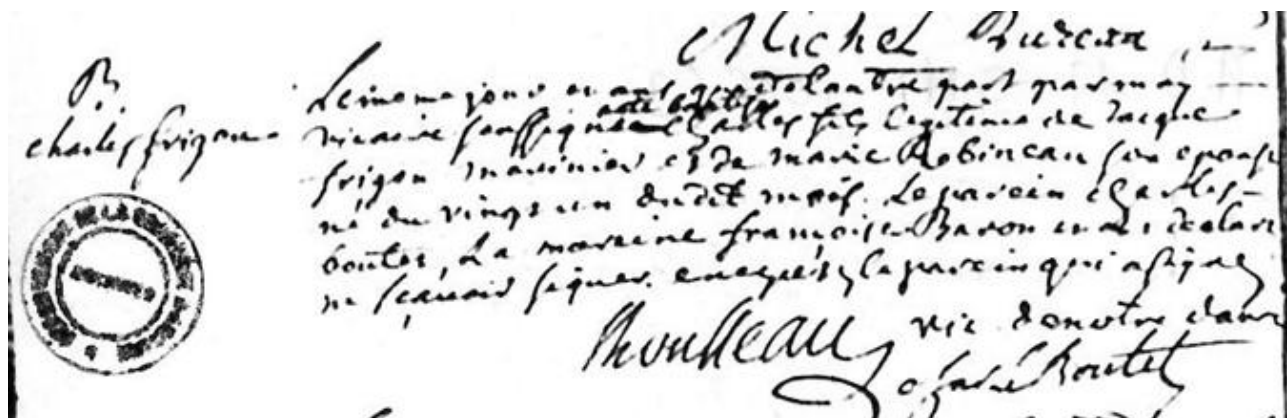 Michel Bureau
B.
charles frigon
Le meme jour et an que de lautre part par moy
vicaire soussigné a été baptisé Charles fils legitime de Jacque
frigon marinier et de marie Robineau son epouse
né du vingt un dudit mois. Le parein charles
boutet, La mareine françoise Baron ont declaré
ne sçavoir signer. excepté le parein qui a signé
Rousseau vic de notre dame
charle Boutet